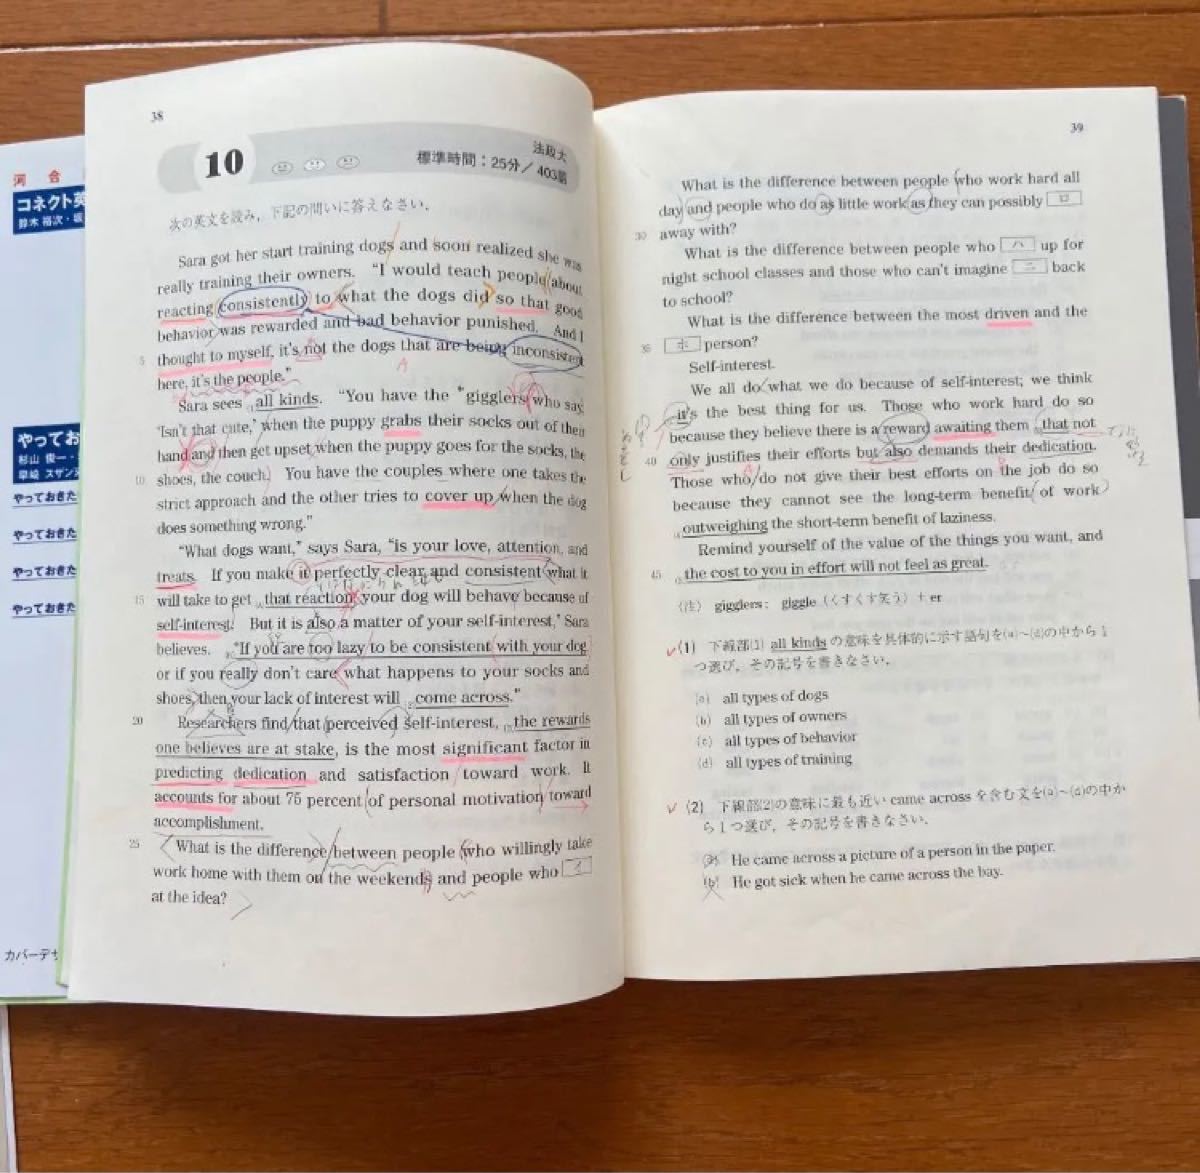 河合
コネクト英
鈴木 裕次・坂
やってお
杉山 俊一・
早崎 スザンヌ
やっておきた
やっておきた
やっておきた
やっておきた
カバーデザ
38
10
法政大
標準時間：25分／403語
次の英文を読み，下記の問いに答えなさい．
Sara got her start training dogs and soon realized she was
really training their owners. “I would teach people about
reacting consistently to what the dogs did so that good
behavior was rewarded and bad behavior punished. And I
5 thought to myself, it's not the dogs that are being inconsistent
here, it's the people.”
Sara sees (1)all kinds. “You have the *gigglers who say,
‘Isn't that cute,’ when the puppy grabs their socks out of their
hand and then get upset when the puppy goes for the socks, the
10 shoes, the couch. You have the couples where one takes the
strict approach and the other tries to cover up when the dog
does something wrong.”
“What dogs want,” says Sara, “is your love, attention, and
treats. If you make it perfectly clear and consistent what it
15 will take to get that reaction, your dog will behave because of
self-interest. But it is also a matter of your self-interest,” Sara
believes. “If you are too lazy to be consistent with your dog
or if you really don't care what happens to your socks and
shoes, then your lack of interest will (2)come across.”
20 Researchers find that perceived self-interest, the rewards
one believes are at stake, is the most significant factor in
predicting dedication and satisfaction toward work. It
accounts for about 75 percent of personal motivation toward
accomplishment.
25 What is the difference between people who willingly take
work home with them on the weekends and people who イ
at the idea?
39
What is the difference between people who work hard all
day and people who do as little work as they can possibly ロ
30 away with?
What is the difference between people who ハ up for
night school classes and those who can't imagine ニ back
to school?
What is the difference between the most driven and the
35 ホ person?
Self-interest.
We all do what we do because of self-interest; we think
it's the best thing for us. Those who work hard do so
because they believe there is a reward awaiting them that not
40 only justifies their efforts but also demands their dedication.
Those who do not give their best efforts on the job do so
because they cannot see the long-term benefit of work
outweighing the short-term benefit of laziness.
Remind yourself of the value of the things you want, and
45 the cost to you in effort will not feel as great.
（注） gigglers: giggle（くすくす笑う）＋er
(1) 下線部(1) all kinds の意味を具体的に示す語句を(a)～(d)の中から1
つ選び，その記号を書きなさい．
(a) all types of dogs
(b) all types of owners
(c) all types of behavior
(d) all types of training
(2) 下線部(2)の意味に最も近い came across を含む文を(a)～(d)の中か
ら1つ選び，その記号を書きなさい．
(a) He came across a picture of a person in the paper.
(b) He got sick when he came across the bay.